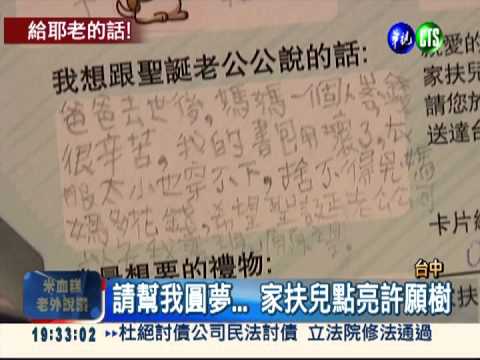 給耶老的話!
華視 CTS
我想跟聖誕老公公說的話:
親愛的
家扶兒
請您於
送達台
爸爸去世後,媽媽一個人賺錢
很辛苦,我的書包用壞了,衣
服太小也穿不下,捨不得見媽
媽多花錢,希望聖誕老公公可
最想要的禮物:
卡片編
台中
米血糕
老外說讚
請幫我圓夢... 家扶兒點亮許願樹
19:33:02
杜絕討債公司民法討債 立法院修法通過